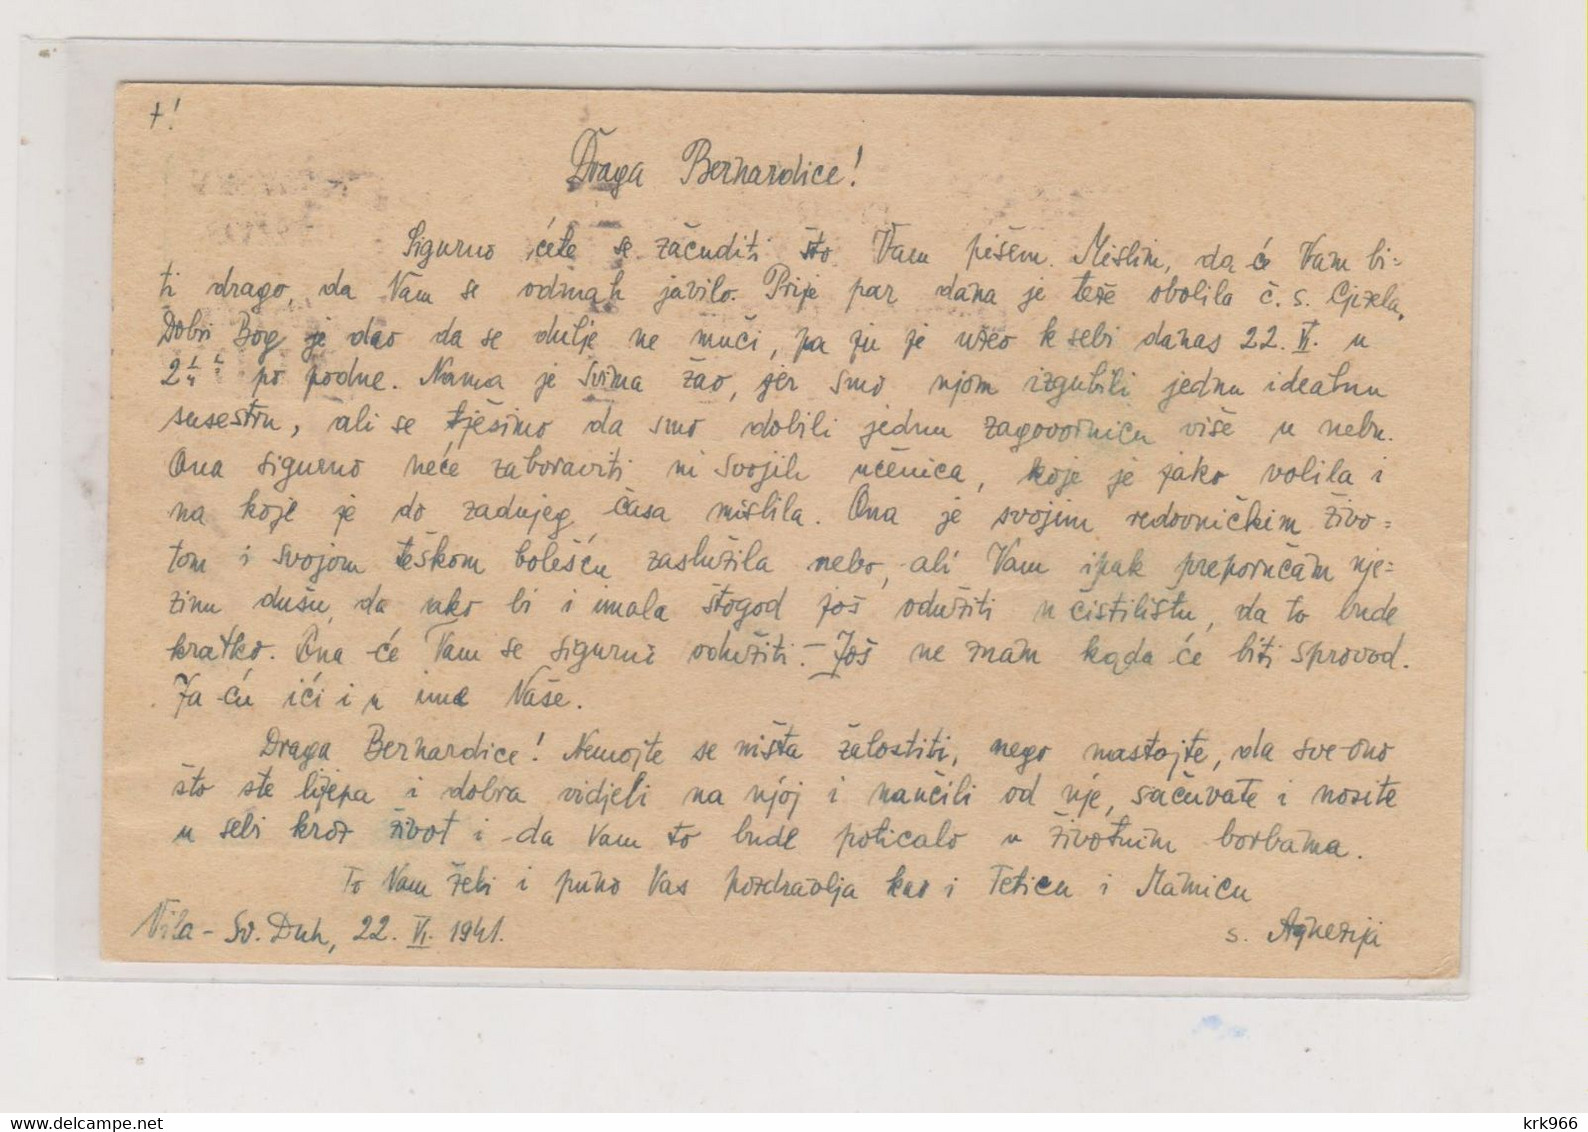 +!
Draga Bernardice!
Sigurno ćete se začuditi što Vam pišem. Mislim, da će Vam bi=
ti drago, da Vam se odmah javilo. Prije par dana je teže obolila č. s. Gizela.
Dobri Bog je dao da se dulje ne muči, pa ju je uzeo k sebi danas 22. VI. u
2 1/4 po podne. Nama je svima žao, jer smo njom izgubili jednu idealnu
susestru, ali se tješimo da smo dobili jednu zagovornicu više u nebu.
Ona sigurno neće zaboraviti ni svojih učenica, koje je jako volila i
na koje je do zadnjeg časa mislila. Ona je svojim redovničkim živo=
tom i svojom teškom bolešću zaslužila nebo, ali Vam ipak preporučam nje=
zinu dušu, da ako bi i imala štogod još odužiti u čistilištu, da to bude
kratko. Ona će Vam se sigurno odužiti. – Još ne znam kada će biti sprovod.
Ja ću ići i u ime Vaše.
Draga Bernardice! Nemojte se ništa žalostiti, nego nastojte, da sve ono
što ste lijepa i dobra vidjeli na njoj i naučili od nje, sačuvate i nosite
u sebi kroz život i da Vam to bude poticalo u životnim borbama.
To Vam želi i puno Vas pozdravlja kao i Teticu i Mamicu
Vila - Sv. Duh, 22. VI. 1941.
s. Agnezija
www.delcampe.net
krk966